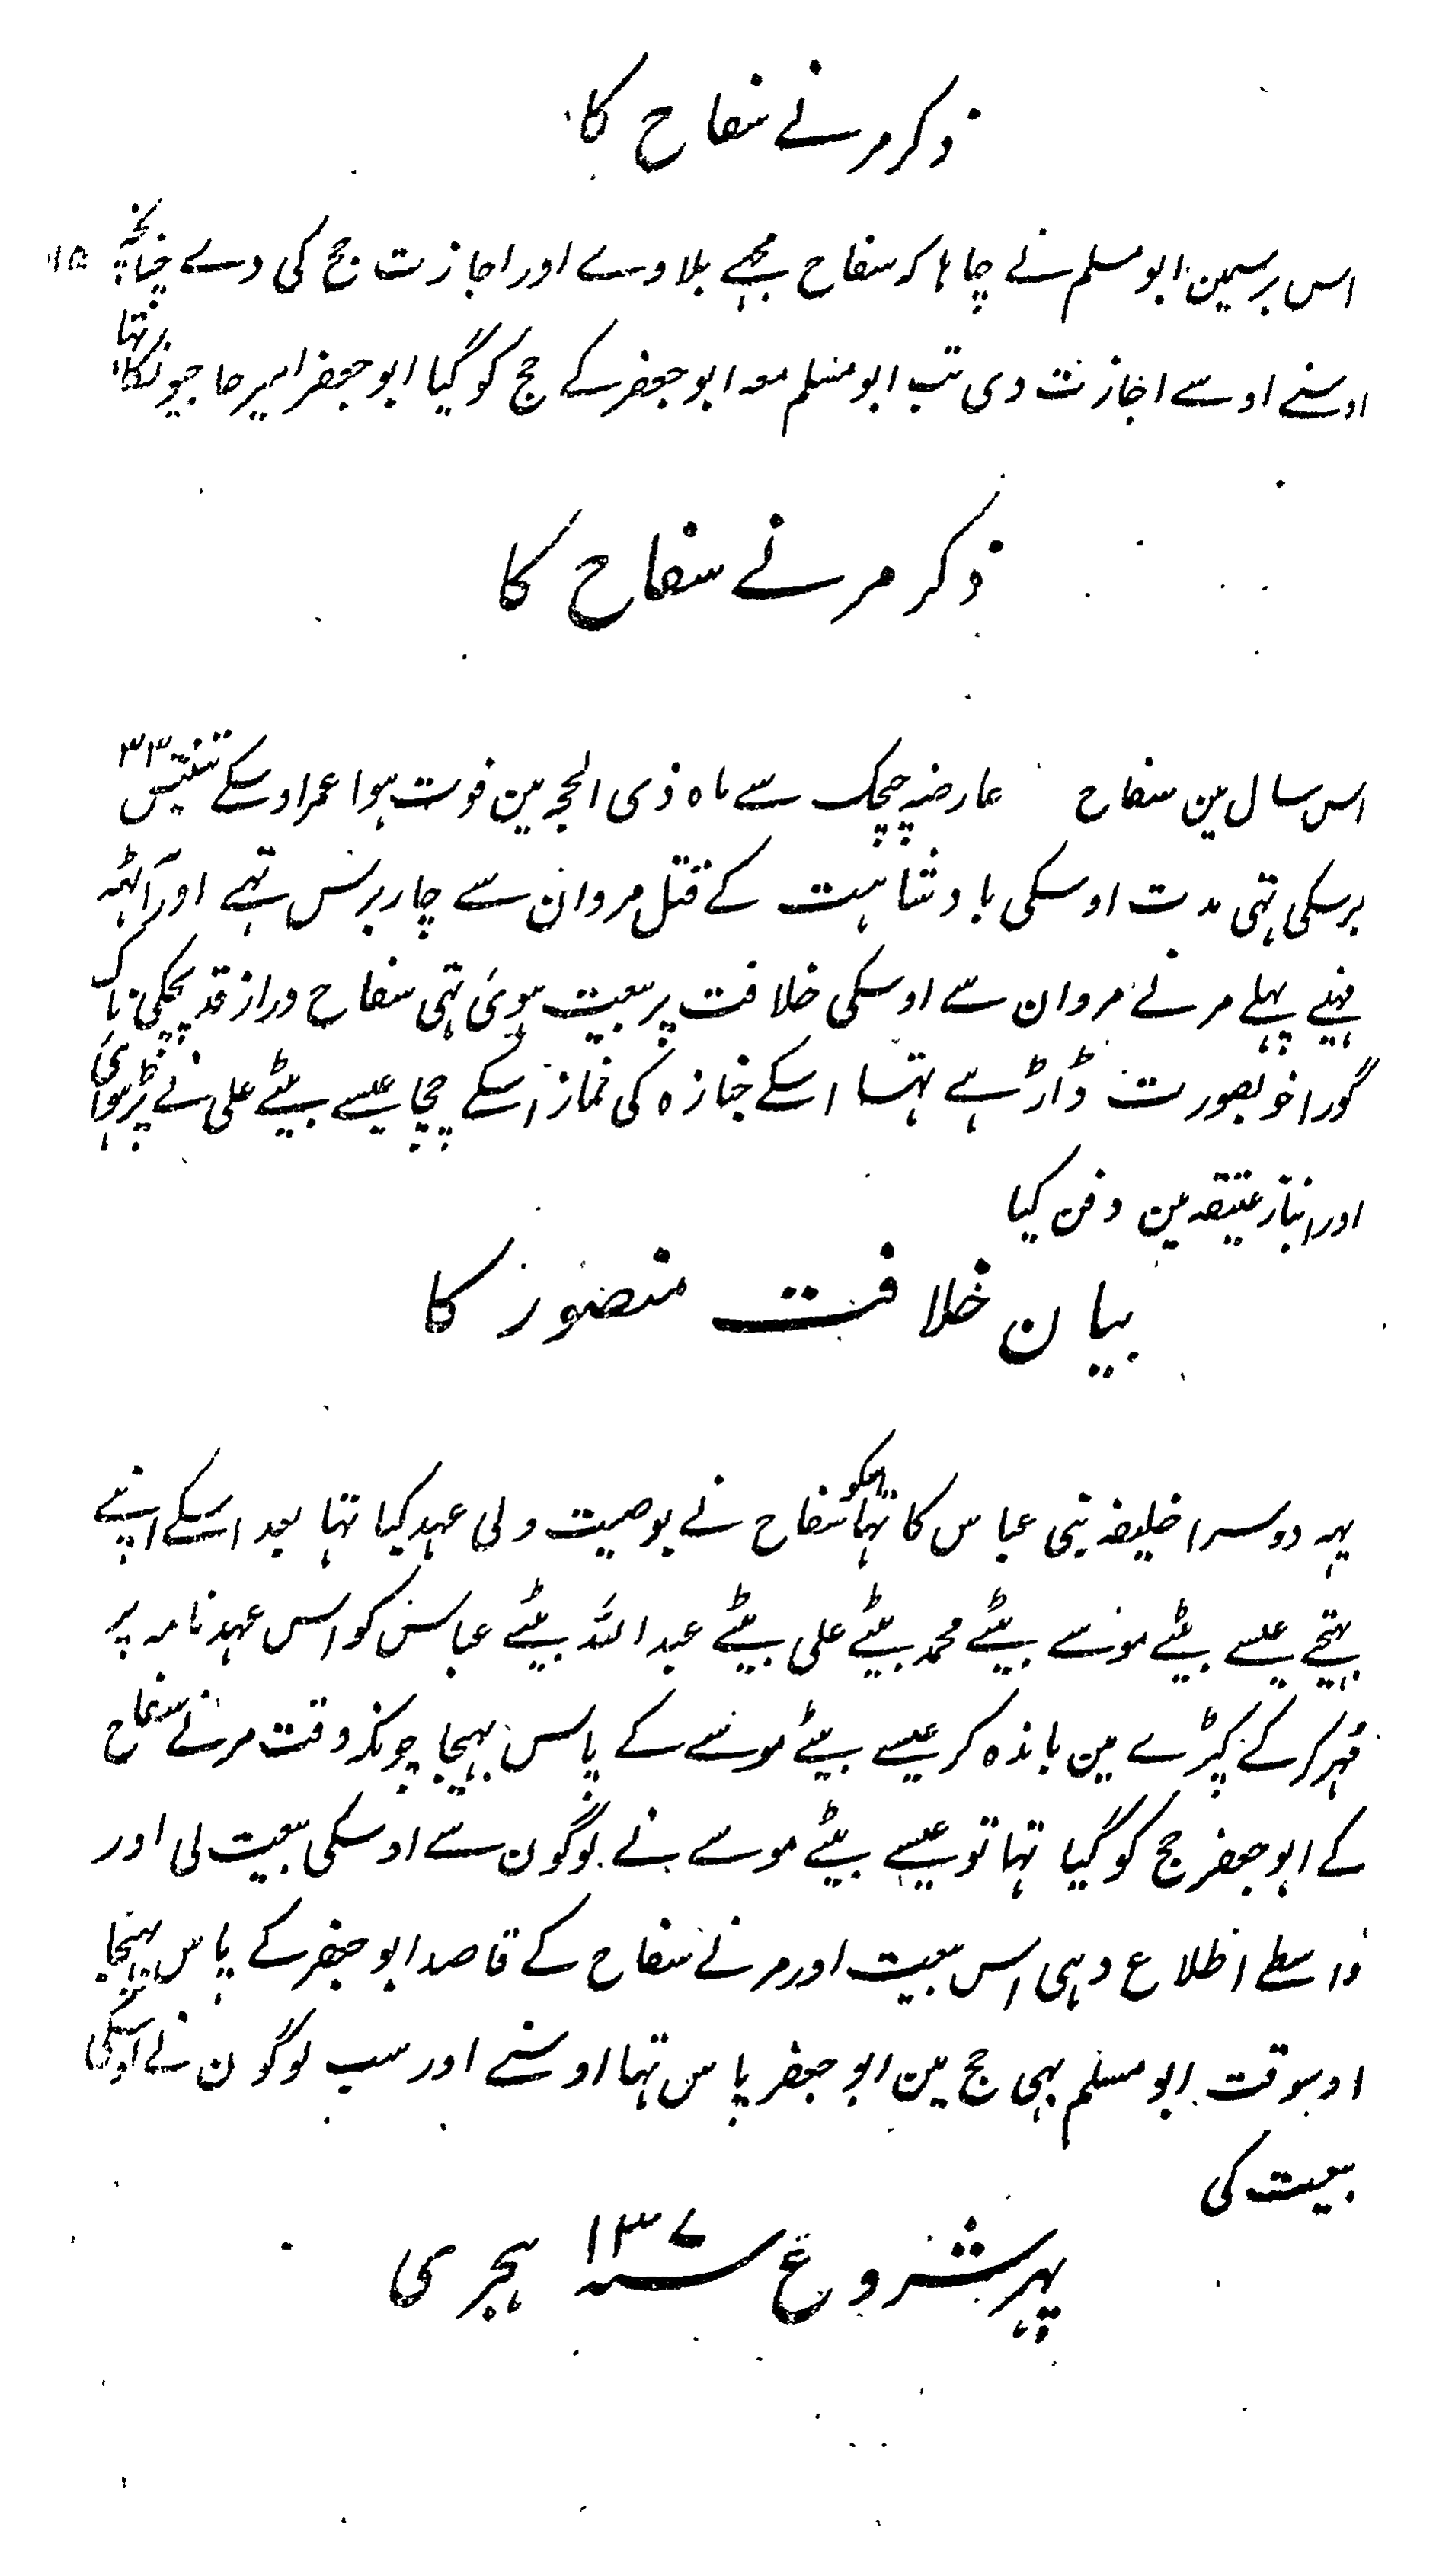 ذکر مرنے سفاح کا
اس برسمین ابو مسلم نے چاہا کہ سفاح مجہے بلاوے اور اجازت حج کی دے چنانچہ ۱۵
اوسنے اوسے اجازت دی تب ابو مسلم معہ ابو جعفر کے حج کو گیا ابو جعفر امیر حاجیونکا تہا
ذکر مرنے سفاح کا
اس سال مین سفاح عارضہ چیچک سے ماہ ذی الحجہ مین فوت ہوا عمر اوسکے تنتیس ۳۳
برسکی تہی مدت اوسکی بادشاہت کے قتل مروان سے چار برس تہے اور آٹہہ
مہنے پہلے مرنے مروان سے اوسکی خلافت پر بیعت ہوئ تہی سفاح دراز قد پچکی ناک
گورا خوبصورت ڈاڑہے تہا اسکے جنازہ کی نماز اسکے چچا عیسے بیٹے علی نے پڑہوائی
اور انبار عتیقہ مین دفن کیا
بیان خلافت منصور کا
یہہ دوسرا خلیفہ بنی عباس کا تہا اسکو سفاح نے بوصیت ولی عہد کیا تہا بعد اسکے اپنے
بہتیجے عیسے بیٹے موسے بیٹے محمد بیٹے علی بیٹے عبد اللہ بیٹے عباس کو اس عہد نامہ پر
مُہر کر کے کپڑے مین باندہ کر عیسے بیٹے موسے کے پاس بہیجا چونکہ وقت مرنے سفاح
کے ابو جعفر حج کو گیا تہا تو عیسے بیٹے موسے نے لوگون سے اوسکی بیعت لی اور
واسطے اطلاع دہی اس بیعت اور مرنے سفاح کے قاصد ابو جعفر کے پاس پہنچا
اوسوقت ابو مسلم بہی حج مین ابو جعفر پاس تہا اوسنے اور سب لوگون نے اوسکی
بیعت کی
پہر شروع سنہ ۱۳۷ ہجری